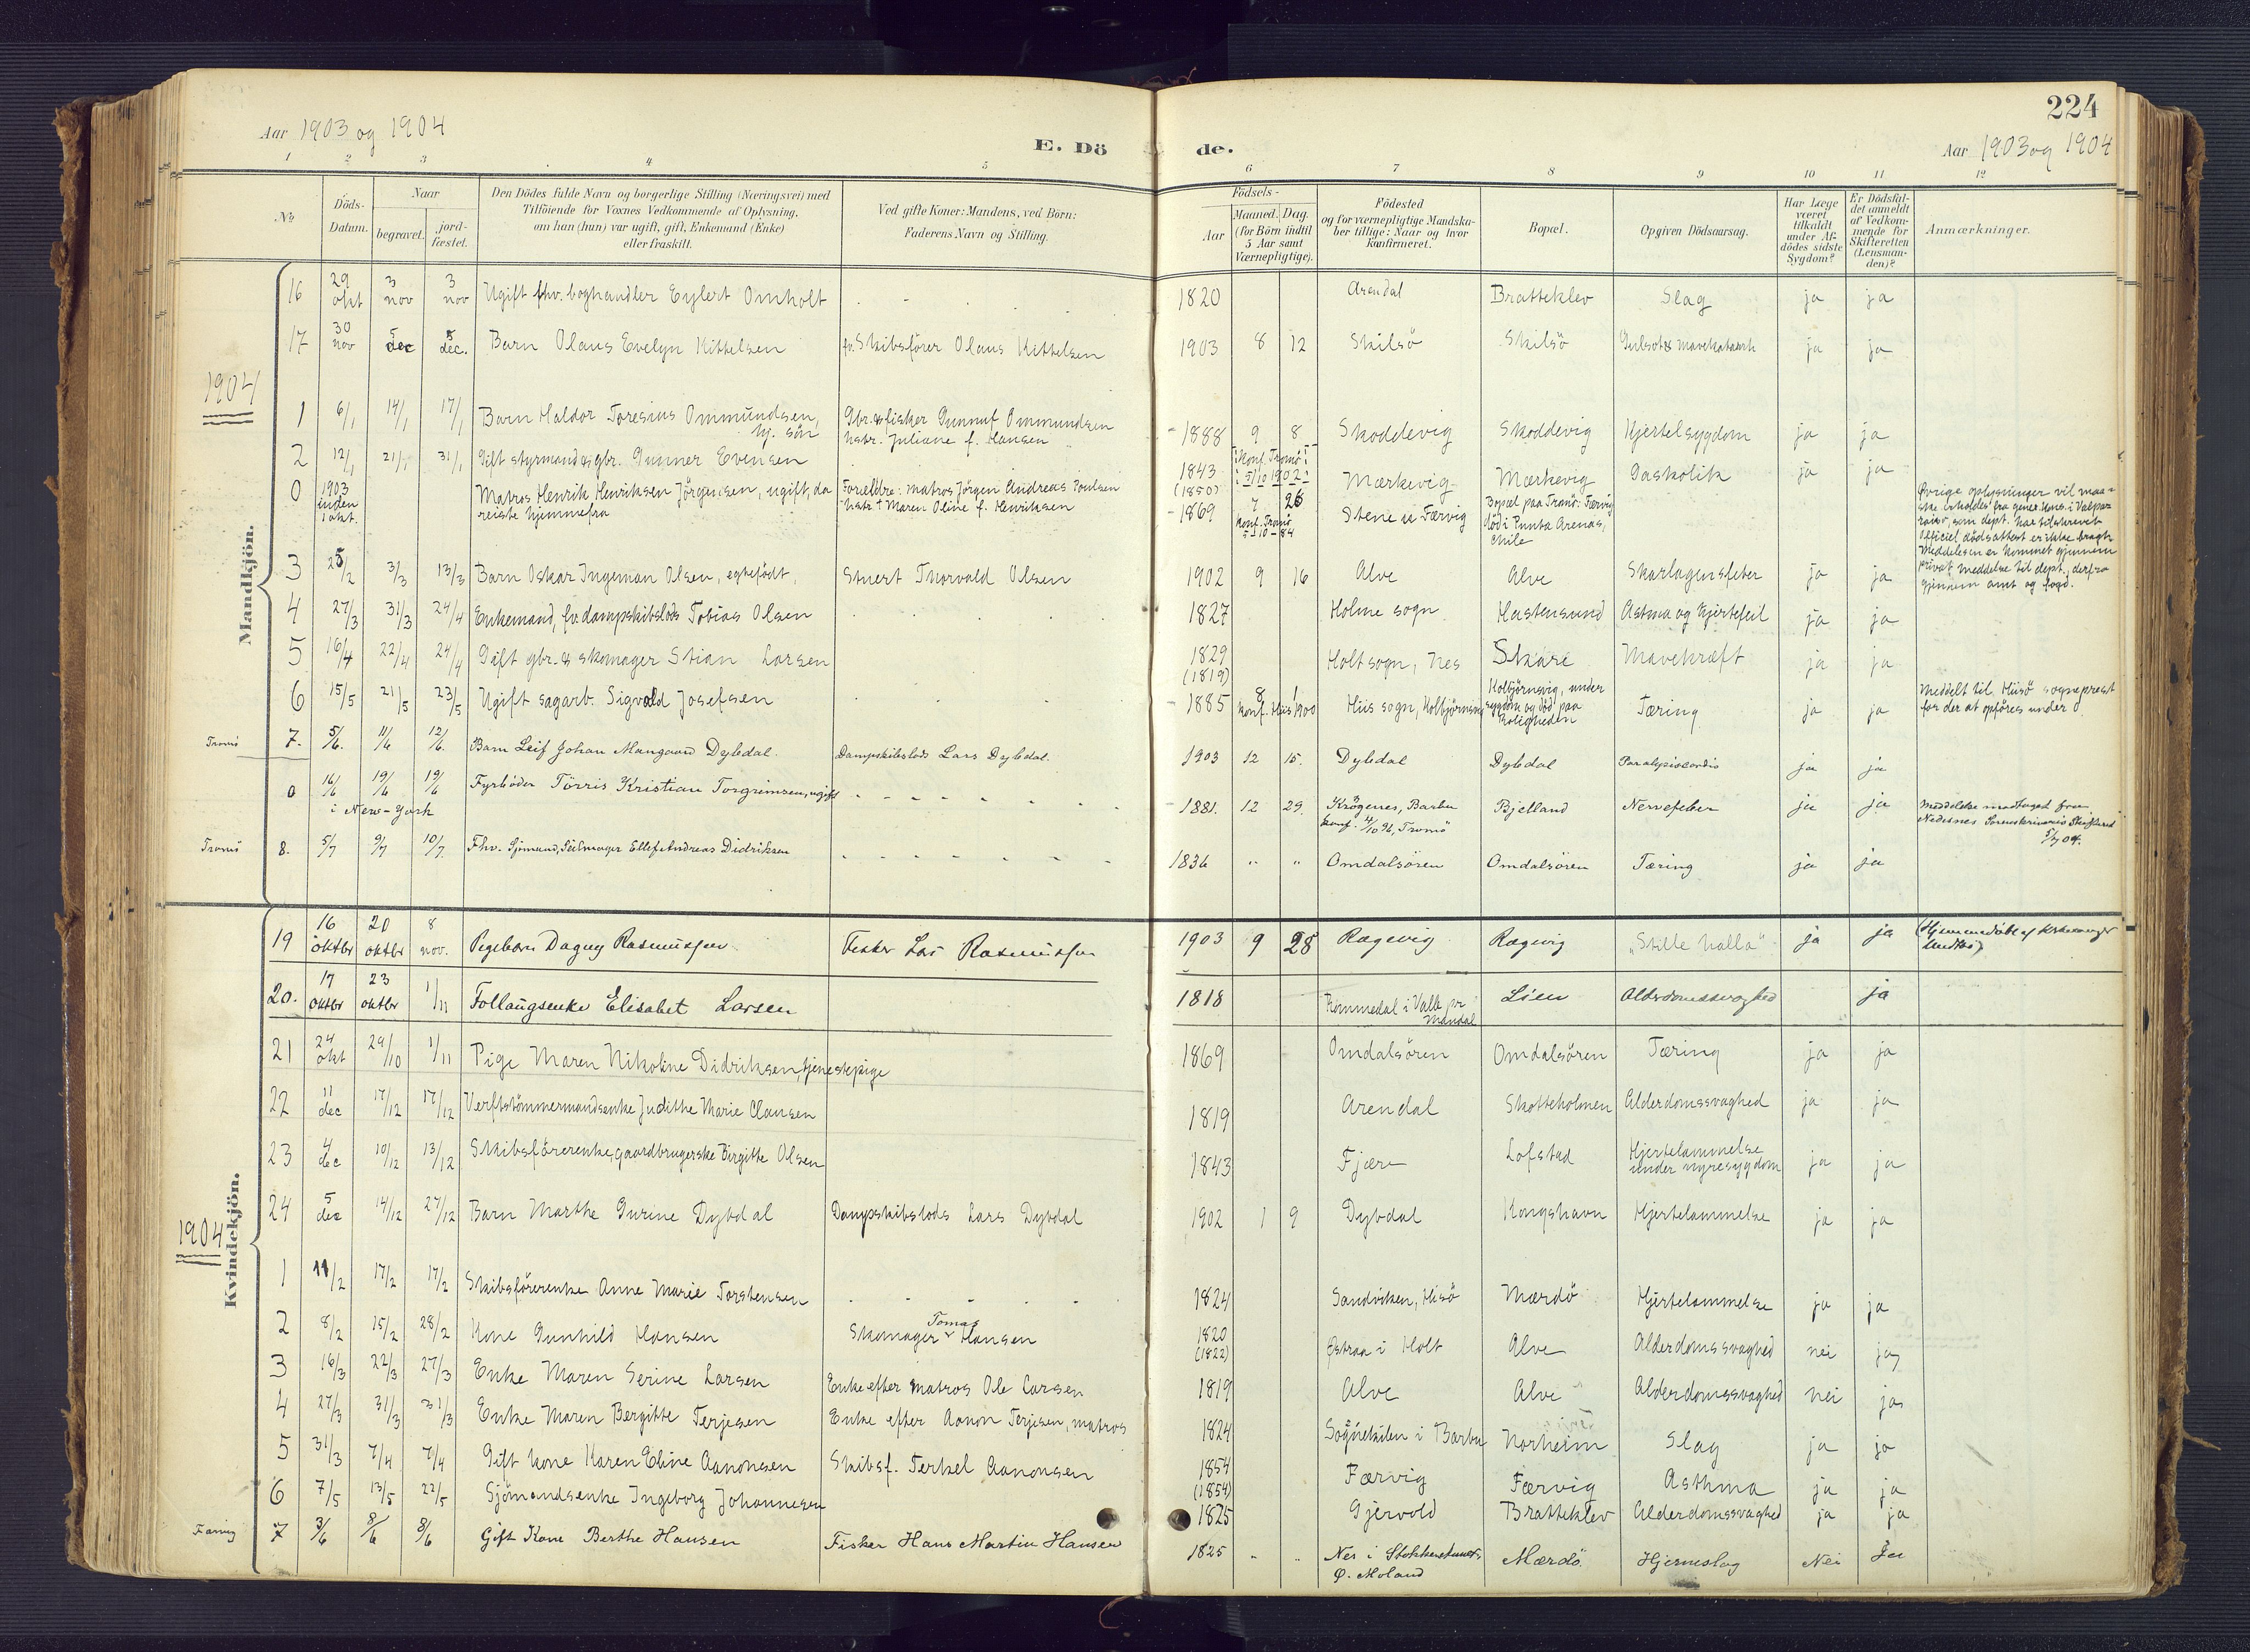 224
Aar 1903 og 1904
E. Dö
de.
Aar 1903 og 1904
1 2 3 4 5 6 7 8 9 10 11 12
No
Döds-
Datum.
Naar
begravet.
jord-
fæstet.
Den Dödes fulde Navn og borgerlige Stilling (Næringsvei) med
Tilföiende for Voxnes Vedkommende af Oplysning,
om han (hun) var ugift, gift, Enkemand (Enke)
eller fraskilt.
Ved gifte Koner: Mandens, ved Börn:
Faderens Navn og Stilling.
Födsels-
Aar
Maaned. Dag.
(for Börn indtil
5 Aar samt
Værnepligtige).
Födested
og for værnepligtige Mandska-
ber tillige: Naar og hvor
konfirmeret.
Bopæl.
Opgiven Dödsaarsag.
Har Læge
været
tilkaldt
under Af-
dödes sidste
Sygdom?
Er Dödsfal-
det anmeldt
af Vedkom-
mende for
Skifteretten
(Lensman-
den)?
Anmærkninger.
Mandkjön.
16 29 okt 3 nov 3 nov Ugift fhv. boghandler Eylert Omholt 1820 Arendal Bratteklev Slag ja ja
17 30 nov 5 dec 5 dec. Barn Olaus Evelyn Kittelsen fv. Skibsförer Olaus Kittelsen 1903 8 12 Skilsö Skilsö Gulsot & mavekatarrh ja ja
1904
1 6/1 14/1 17/1 Barn Haldor Toresius Ommundsen, hj. sön Gbr. & fisker Gunnuf Ommundsen hstr. Juliane f. Hansen 1888 9 8 Skoddevig Skoddevig Hjertelsygdom ja ja
Konf. Tromö 5/10 1902
2 12/1 21/1 31/1 Gift styrmand & gbr. Gunner Evensen 1843 (1850) Mærkevig Mærkevig Gaskolik ja ja
0 1903 inden 1 okt. Matros Henrik Henriksen Jörgensen, ugift, da reiste hjemmefra Forældre: matros Jörgen Andreas Poulsen hstr. † Maren Oline f. Henriksen 1869 7 26 Konf. Tromö 5/10-84 Stene u. Færvig Bopæl paa Tromö: Færvig död i Punta Arenas, Chile
Øvrige oplysninger vil maa-
ske erholdes fra gener. kons. i Valpa-
raiso, som dept. har tilskrevet
Officiel dödsattest er ikke bragt
Meddelelsen er kommet gjennem
privat meddelse til dept., derfra
gjennem amt og fogd.
3 25/2 3/3 13/3 Barn Oskar Ingeman Olsen, egtefödt, Stuert Thorvald Olsen 1902 9 16 Alve Alve Skarlagensfeber ja ja
4 27/3 31/3 24/4 Enkemand, fv. dampskibslods Tobias Olsen 1827 Holme sogn Hastensund Astma og hjertefeil ja ja
5 16/4 22/4 24/4 Gift gbr. & skomager Stian Larsen 1829 (1819) Holt sogn, Nes Skare Mavekræft ja ja
6 15/5 21/5 23/5 Ugift sagarb. Sigvald Josefsen 1885 8 1 Konf. Hiis 1900 Hiis sogn, Kolbjörnsvig Kolbjörnsvig, under sygdom og död paa Roligheden Tæring ja ja
Meddelt til Hisö sogneprest
for der at opföres under
Tromö 7. 5/6. 11/6 12/6. Barn Leif Johan Mangaard Dybdal. Dampskibslods Lars Dybdal. 1903 12 15. Dybdal Dybdal Paralysis cordis ja ja
0 16/6 19/6 19/6 i New-York Fyrböder Törris Kristian Torgrimsen, ugift 1881. 12 29. Krögenes, Barbu konf. 4/10 96, Tromö Bjelland Nervefeber ja ja
Meddelelse modtaget fra
Nedenes Sorenskriveris Skifteret
5/7 04.
Tromö 8. 5/7 9/7 10/7. Fhv. Sjömand, Seilmager Ellef Andreas Didriksen 1836 " " Omdalsören Omdalsören Tæring ja ja
Kvindekjön.
19 16 oktbr 20 oktbr 8 nov. Pigebarn Dagny Rasmussen Fisker Lars Rasmussen 1903 9 28 Rægevig Rægevig "Stille halla" ja ja (Hjemmedöbt af
20. 17 oktbr 23 oktbr 1/11 Follaugsenke Elisabet Larsen 1818 i Valle pr Mandal Lien Alderdomssvaghed ja
21 24 okt 29/10 1/11 Pige Maren Nikoline Didriksen, tjenestepige 1869 Omdalsören Omdalsören Tæring ja ja
22 11 dec 17/12 17/12 Verftstömmermandsenke Judithe Marie Clausen 1819 Arendal Skotteholmen Alderdomssvaghed ja ja
23 4 dec 10/12 13/12 Skibsförerenke, gaardbrugerske Birgitte Olsen 1843 Fjære Lofstad Hjertelammelse under nyresygdom ja ja
24 5 dec 14/12 27/12 Barn Marthe Gurine Dybdal Dampskibslods Lars Dybdal 1902 1 9 Dybdal Kongshavn Hjertelammelse ja ja
1904
1 11/2 17/2 17/2 Skibsförerenke Anne Marie Torstensen 1824 Sandviken, Hisö Mærdö Hjertelammelse ja ja
2 8/2 15/2 28/2 Kone Gunhild Hansen Skomager Tomas Hansen 1820 (1822) Østraa i Holt Alve Alderdomssvaghed nei ja
3 16/3 22/3 27/3 Enke Maren Serine Larsen Enke efter matros Ole Larsen 1819 Alve Alve Alderdomssvaghed nei ja
4 27/3 31/3 31/3 Enke Maren Bergitte Terjesen Enke efter Aanon Terjesen, matros 1824 Sognekilen i Barbu Norheim Slag ja ja
5 31/3 7/4 7/4 Gift kone Karen Eline Aanonsen Skibsf. Terkel Aanonsen 1854 (1854) Færvig Færvig Asthma ja ja
6 7/5 13/5 22/5 Sjömandsenke Ingeborg Johannesen 1825 Gjervold Bratteklev Alderdomssvaghed ja ja
7 3/6 8/6 8/6 Gift Kone Berthe Hansen Fisker Hans Martin Hansen 1825 " " Nes i Ø. Moland Mærdö. Hjerneslag Nei Ja